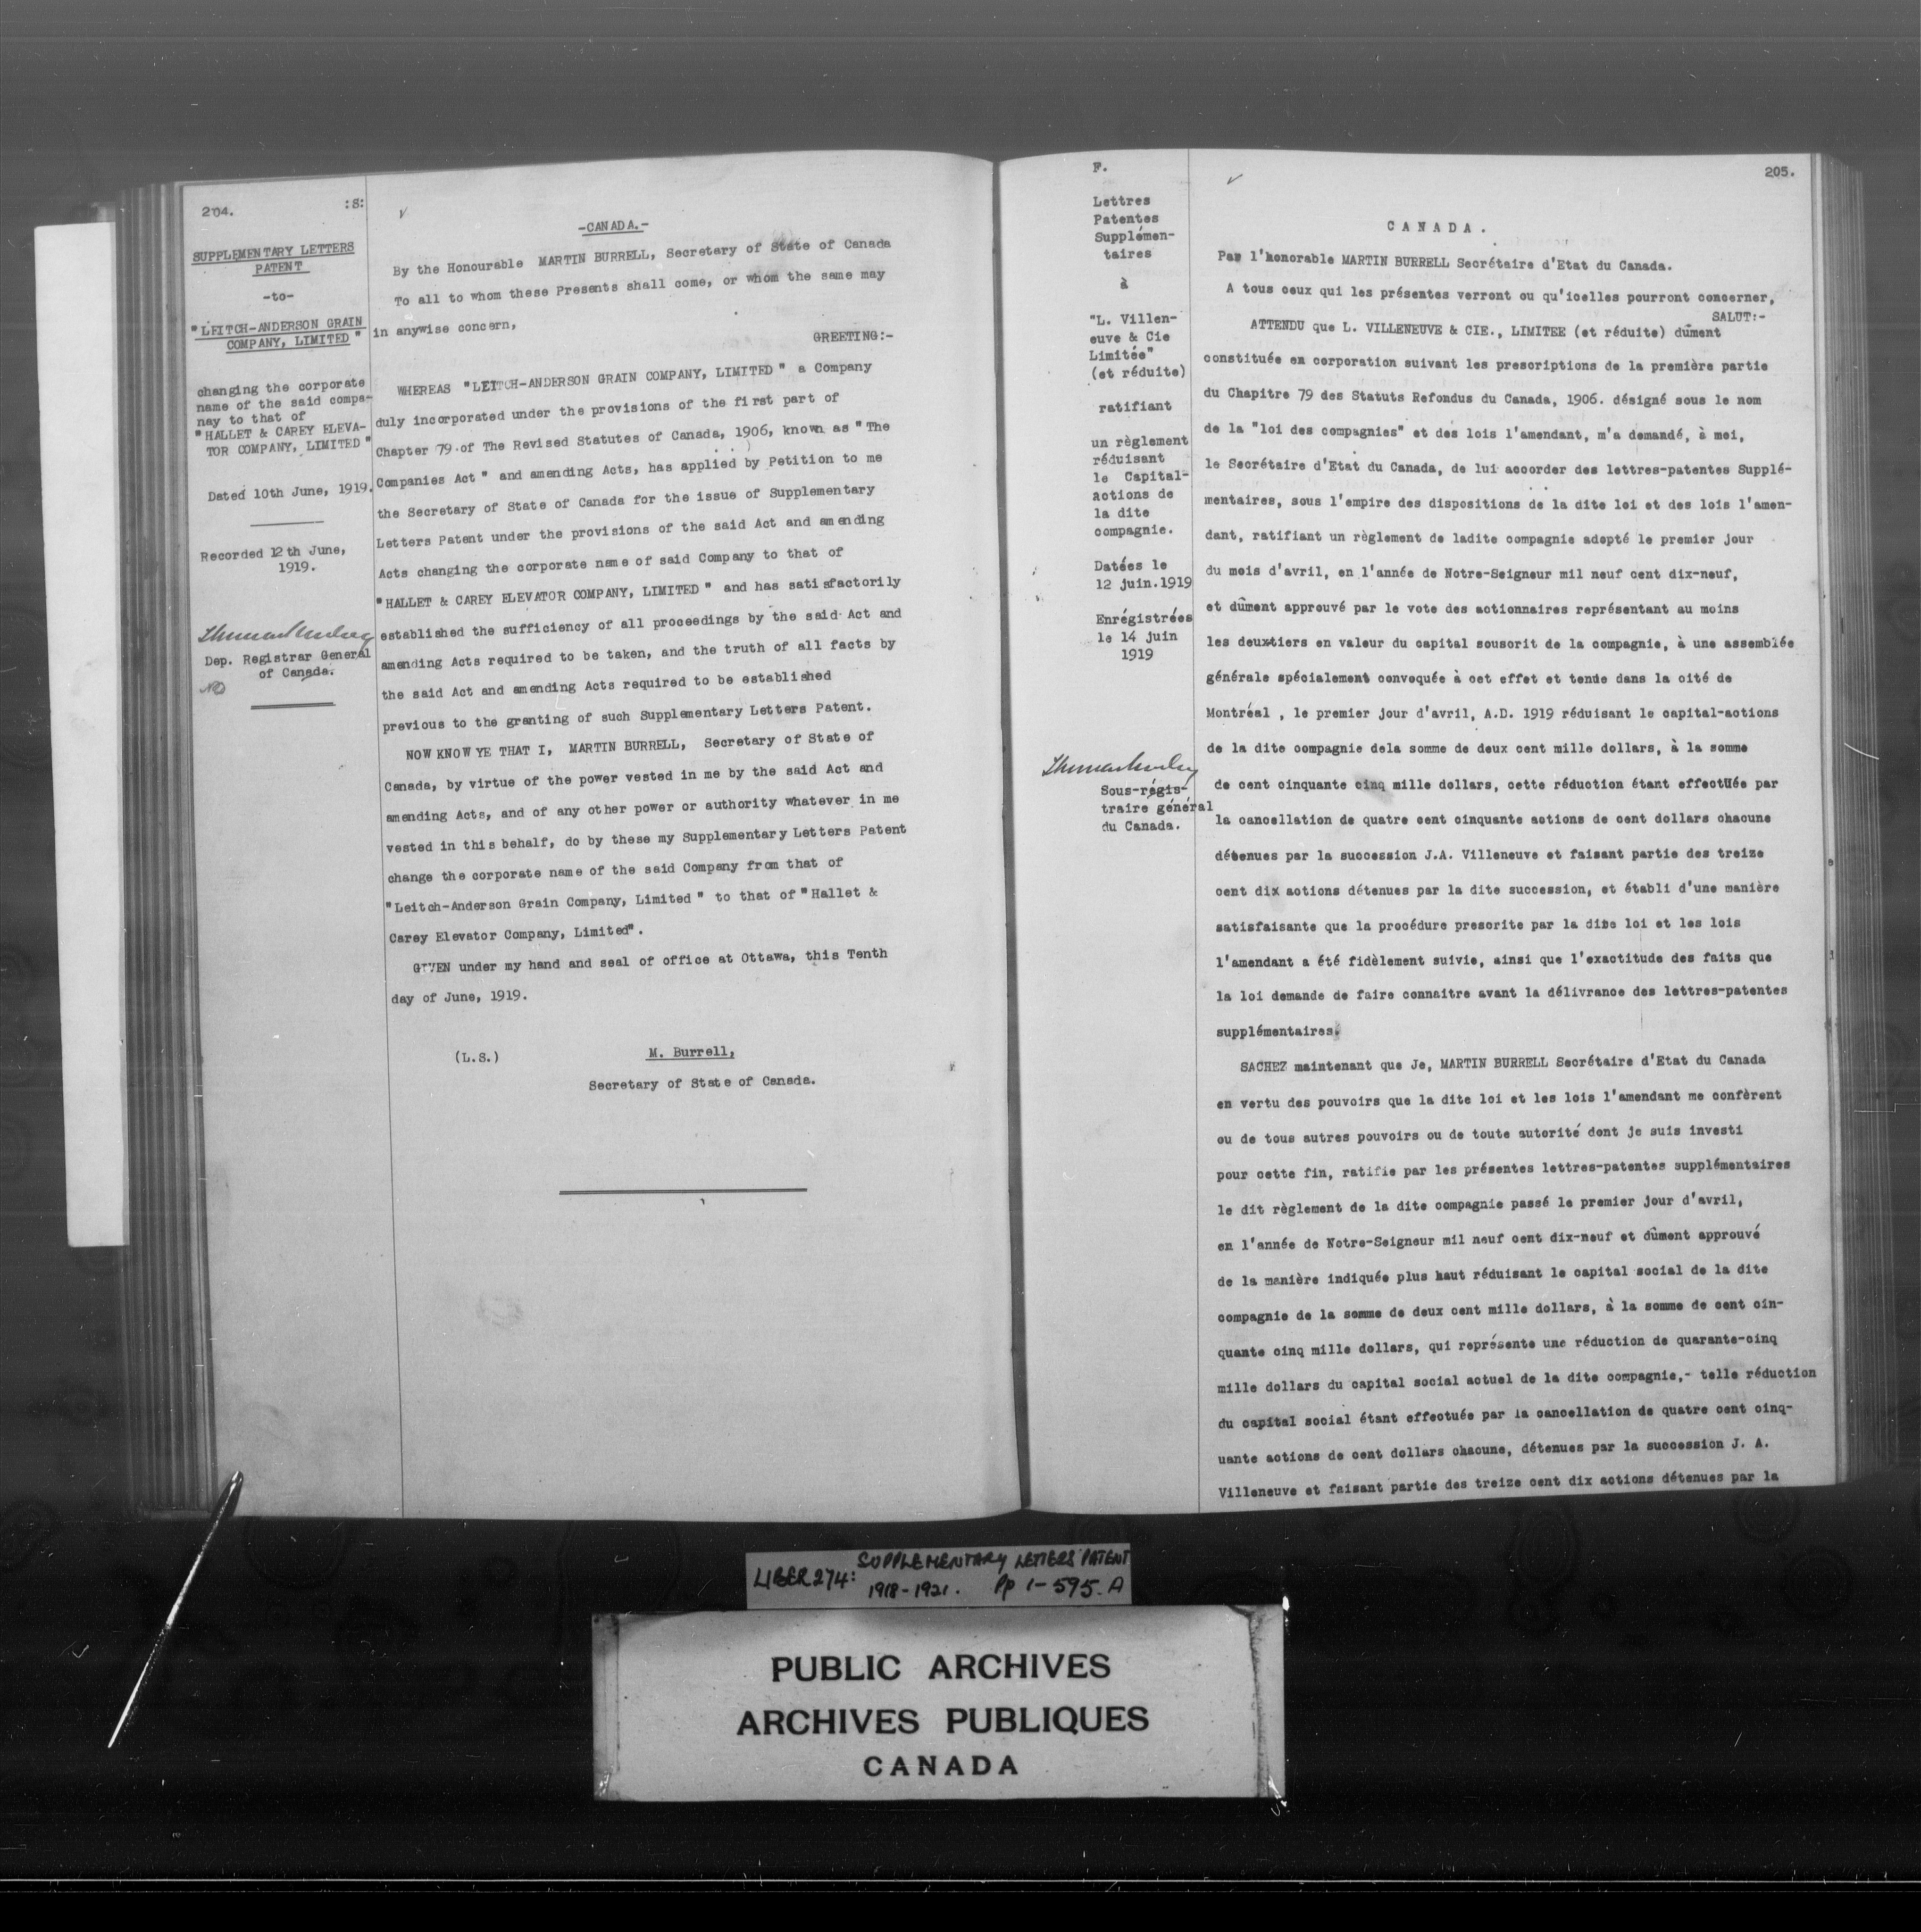 204.
:S:
SUPPLEMENTARY LETTERS
PATENT
-to-
"LEITCH-ANDERSON GRAIN
COMPANY, LIMITED"
changing the corporate
name of the said compa-
nay to that of
"HALLET & CAREY ELEVA-
TOR COMPANY, LIMITED"
Dated 10th June, 1919.
Recorded 12th June,
1919.
Dep. Registrar General
of Canada.
-CANADA.-
By the Honourable MARTIN BURRELL, Secretary of State of Canada
To all to whom these Presents shall come, or whom the same may
in anywise concern,
GREETING:-
WHEREAS "LEITCH-ANDERSON GRAIN COMPANY, LIMITED" a Company
duly incorporated under the provisions of the first part of
Chapter 79 of The Revised Statutes of Canada, 1906, known as "The
Companies Act" and amending Acts, has applied by Petition to me
the Secretary of State of Canada for the issue of Supplementary
Letters Patent under the provisions of the said Act and amending
Acts changing the corporate name of said Company to that of
"HALLET & CAREY ELEVATOR COMPANY, LIMITED" and has satisfactorily
established the sufficiency of all proceedings by the said Act and
amending Acts required to be taken, and the truth of all facts by
the said Act and amending Acts required to be established
previous to the granting of such Supplementary Letters Patent.
NOW KNOW YE THAT I, MARTIN BURRELL, Secretary of State of
Canada, by virtue of the power vested in me by the said Act and
amending Acts, and of any other power or authority whatever in me
vested in this behalf, do by these my Supplementary Letters Patent
change the corporate name of the said Company from that of
"Leitch-Anderson Grain Company, Limited" to that of "Hallet &
Carey Elevator Company, Limited".
GIVEN under my hand and seal of office at Ottawa, this Tenth
day of June, 1919.
(L.S.)
M. Burrell,
Secretary of State of Canada.
F.
Lettres
Patentes
Supplémen-
taires
à
"L. Villen-
euve & Cie
Limitée"
(et réduite)
ratifiant
un règlement
réduisant
le Capital-
actions de
la dite
compagnie.
Datées le
12 juin.1919
Enrégistrées
le 14 juin
1919
Sous-régis-
traire général
du Canada.
205.
CANADA.
Par l'honorable MARTIN BURRELL Secrétaire d'Etat du Canada.
A tous ceux qui les présentes verront ou qu'icelles pourront concerner,
SALUT:-
ATTENDU que L. VILLENEUVE & CIE., LIMITEE (et réduite) dûment
constituée en corporation suivant les prescriptions de la première partie
du Chapitre 79 des Statuts Refondus du Canada, 1906. désigné sous le nom
de la "loi des compagnies" et des lois l'amendant, m'a demandé, à moi,
le Secrétaire d'Etat du Canada, de lui accorder des lettres-patentes Supplé-
mentaires, sous l'empire des dispositions de la dite loi et des lois l'amen-
dant, ratifiant un règlement de ladite compagnie adopté le premier jour
du mois d'avril, en l'année de Notre-Seigneur mil neuf cent dix-neuf,
et dûment approuvé par le vote des actionnaires représentant au moins
les deux-tiers en valeur du capital souscrit de la compagnie, à une assemblée
générale spécialement convoquée à cet effet et tenue dans la cité de
Montréal , le premier jour d'avril, A.D. 1919 réduisant le capital-actions
de la dite compagnie dela somme de deux cent mille dollars, à la somme
de cent cinquante cinq mille dollars, cette réduction étant effectuée par
la cancellation de quatre cent cinquante actions de cent dollars chacune
détenues par la succession J.A. Villeneuve et faisant partie des treize
cent dix actions détenues par la dite succession, et établi d'une manière
satisfaisante que la procédure prescrite par la dite loi et les lois
l'amendant a été fidèlement suivie, ainsi que l'exactitude des faits que
la loi demande de faire connaitre avant la délivrance des lettres-patentes
supplémentaires.
SACHEZ maintenant que Je, MARTIN BURRELL Secrétaire d'Etat du Canada
en vertu des pouvoirs que la dite loi et les lois l'amendant me confèrent
ou de tous autres pouvoirs ou de toute autorité dont je suis investi
pour cette fin, ratifie par les présentes lettres-patentes supplémentaires
le dit règlement de la dite compagnie passé le premier jour d'avril,
en l'année de Notre-Seigneur mil neuf cent dix-neuf et dûment approuvé
de la manière indiquée plus haut réduisant le capital social de la dite
compagnie de la somme de deux cent mille dollars, à la somme de cent cin-
quante cinq mille dollars, qui représente une réduction de quarante-cinq
mille dollars du capital social actuel de la dite compagnie,- telle réduction
du capital social étant effectuée par la cancellation de quatre cent cinq-
uante actions de cent dollars chacune, détenues par la succession J. A.
Villeneuve et faisant partie des treize cent dix actions détenues par la
LIBER 274: SUPPLEMENTARY LETTERS PATENT
1918-1921. Pp 1-595.A
PUBLIC ARCHIVES
ARCHIVES PUBLIQUES
CANADA